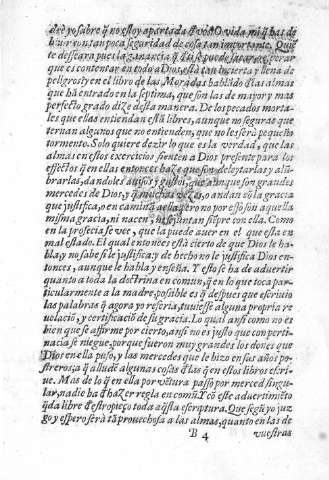 dre yo sabre q̃ no estoy apartada de vos? O vida mi q̃ has de
biuir con tan poca seguridad de cosa tan importante. Quiẽ
te desseara pues la ganancia q̃ de ti se puede sacar o esperar
que es contentar en todo a Dios, està tan incierta y llena de
peligros? y en el libro de las Moradas hablãdo de las almas
que hã entrado en la septima, que son las de mayor y mas
perfecto grado dize desta manera. De los pecados morta-
les que ellas entiendan està libres, aunque no seguras que
ternan algunos que no entienden, que no les serà pequeño
tormento. Solo quiero dezir lo que es la verdad, que las
almas en estos exercicios sienten a Dios presente para los
effectos q̃ en ellas entonces haze que son deleytarlas y alũ-
brarlas, dandoles auisos y gustos, que aunque son grandes
mercedes de Dios, y q̃ muchas vezes, o andan cõ la gracia
que justifica, o encaminã a ella, pero no por esso son aquella
misma gracia, ni nacen, ni se juntan siẽpre con ella. Como
en la profecia se vee, que la puede auer en el que està en
mal estado. El qual entonces està cierto de que Dios le ha-
bla, y no sabe si le justifica, y de hecho no le justifica Dios en-
tonces, aunque le habla y enseña. Y esto se ha de aduertir
quanto a toda la doctrina en comun, q̃ en lo que toca par-
ticularmente a la madre, possible es q̃ despues que escriuio
las palabras q̃ agora yo referia, tuuiesse alguna propria re
uelaciõ, y certificaciõ de su gracia. Lo qual ansi como no es
bien que se affirme por cierto, ansi no es justo que con perti-
nacia se niegue, porque fueron muy grandes los dones que
Dios en ella puso, y las mercedes que le hizo en sus años po-
streros, a q̃ allude algunas cosas de las q̃ en estos libros escri-
ue. Mas de lo q̃ en ella por vẽtura passò por merced singu-
lar, nadie ha de hazer regla en comũ. Y cõ este aduertimiẽto
queda libre de estropieço toda aq̃sta escriptura. Que segũ yo juz
go y espero serà tã prouechosa a las almas, quanto en las de
B 4 vuestras